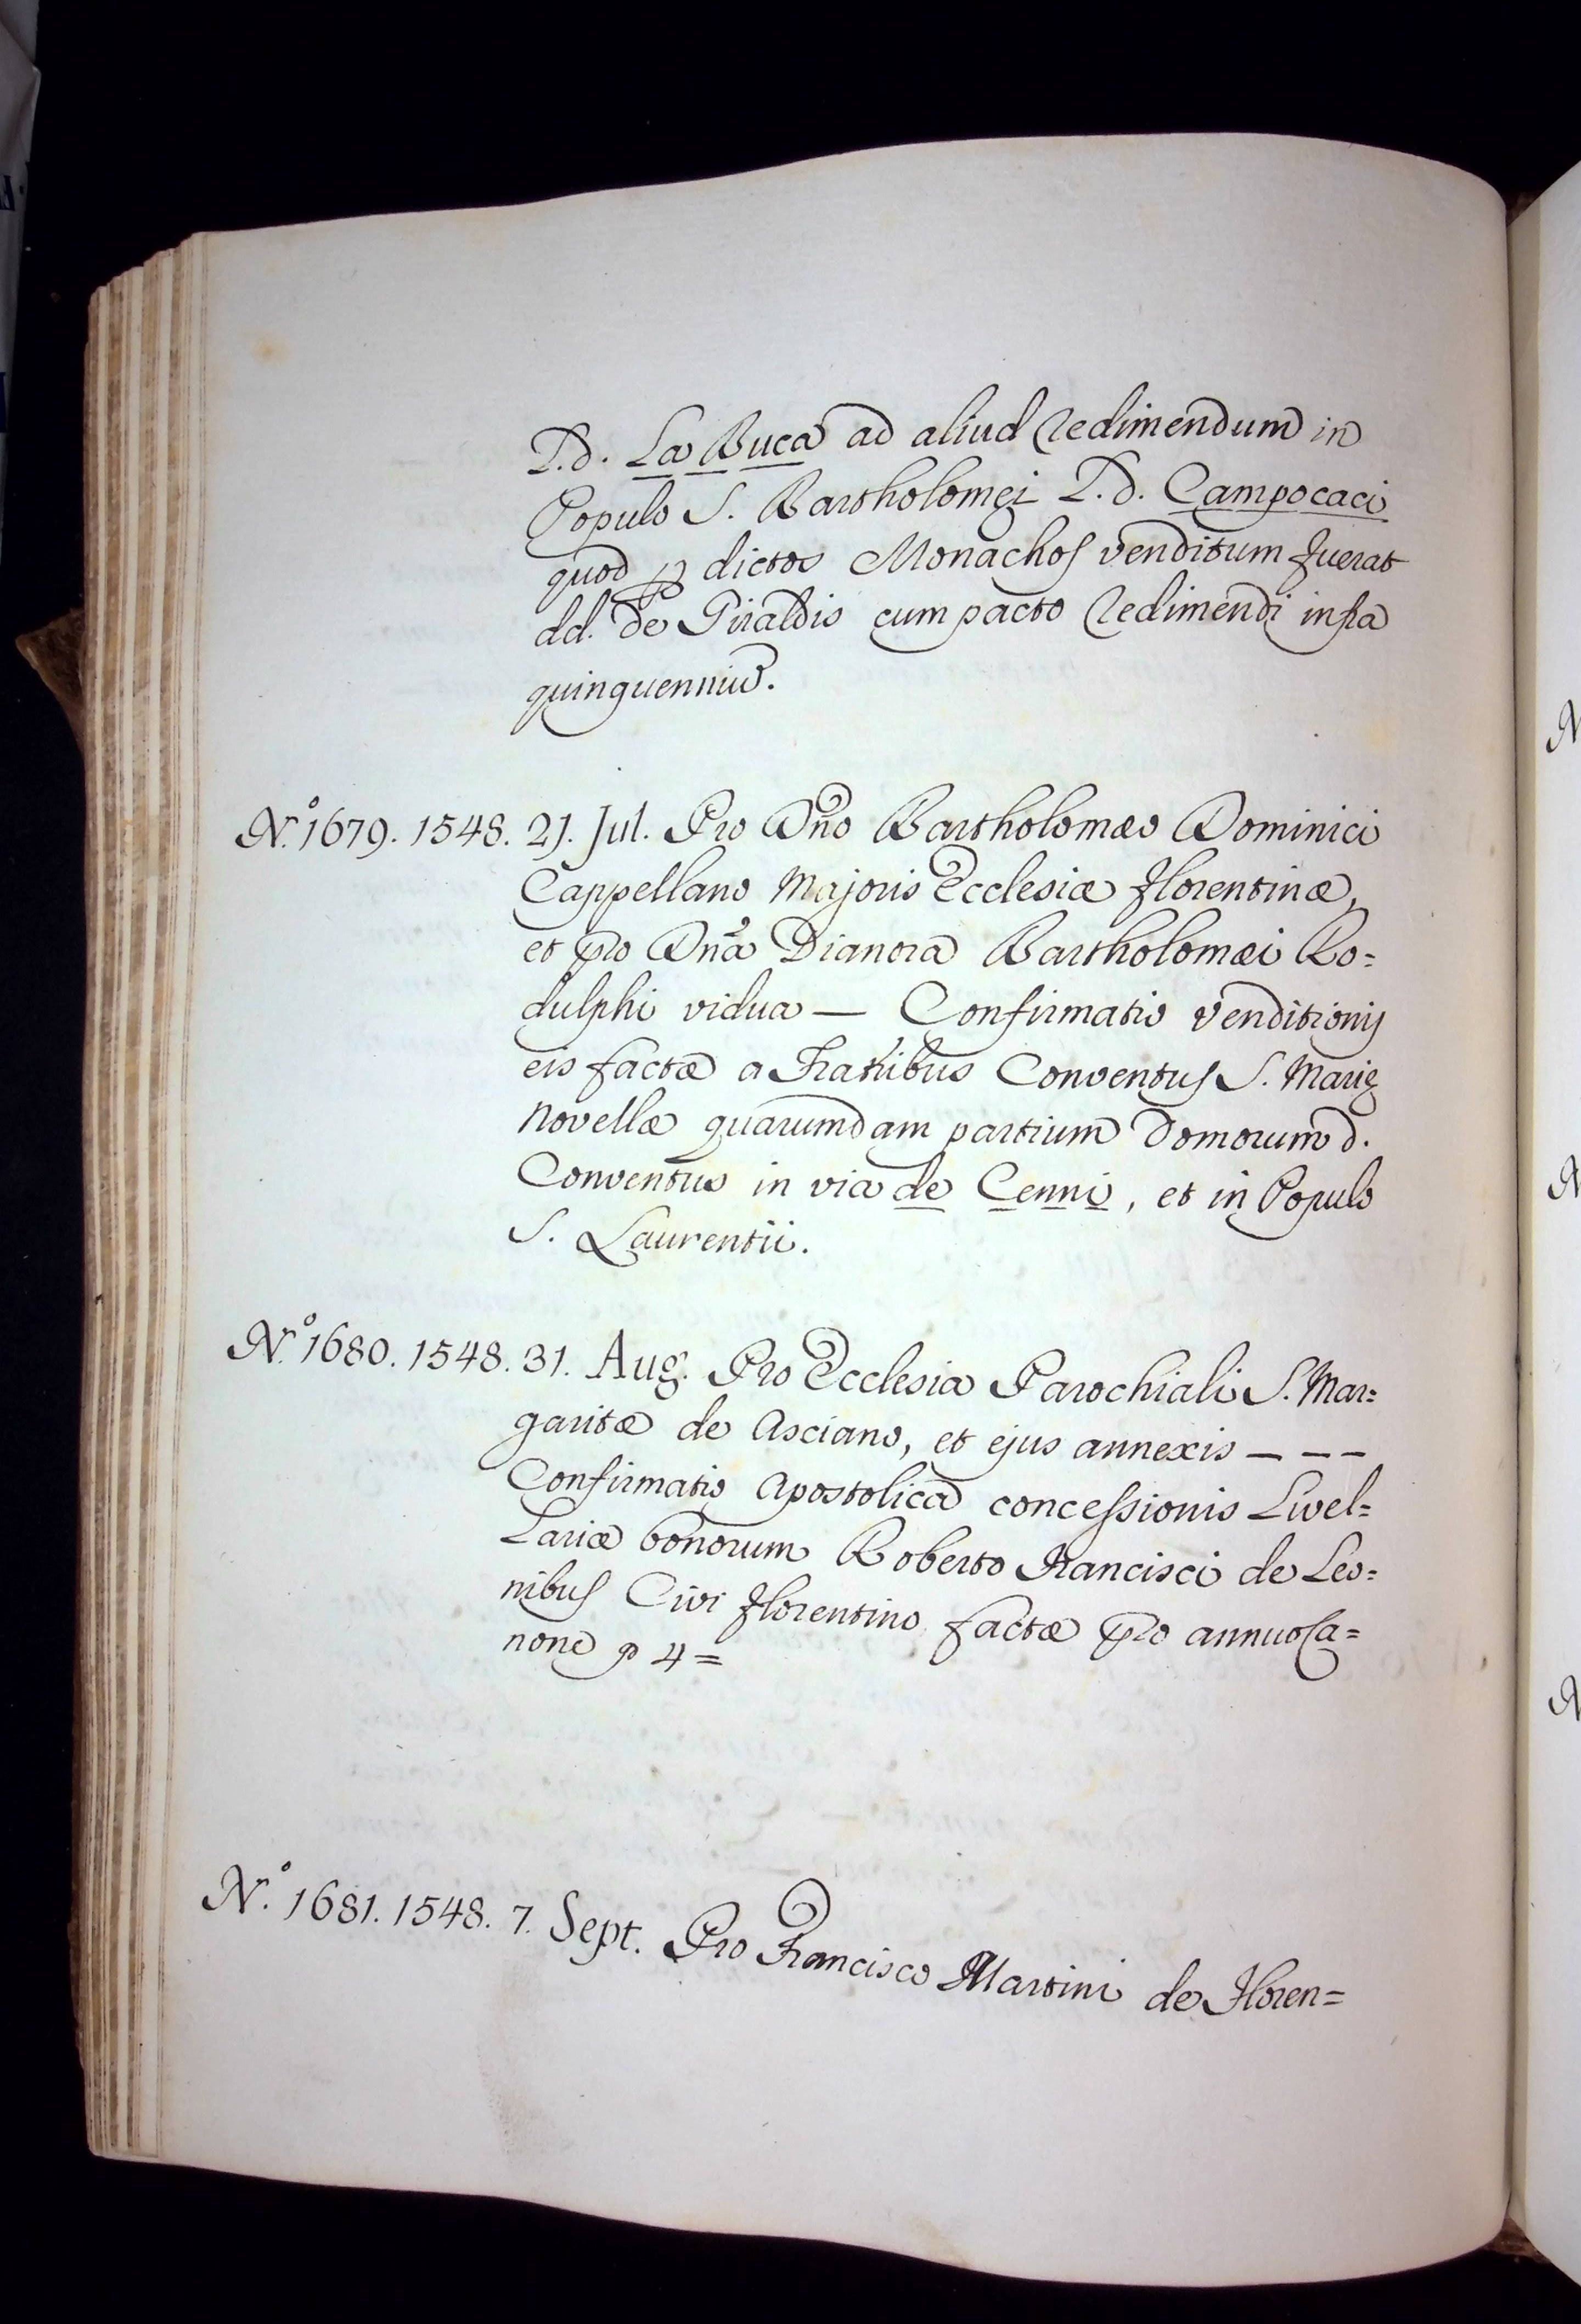 L.d. La Buca ad aliud redimendum in
Populo S. Bartholomęi L.d. Campocaci
quod ꝑ dictos Monachos venditum fuerat
dd. de Giraldis cum pacto redimendi infra
quinquenniũ.
N.º 1679. 1548. 21. Jul. Pro Dño Bartholomæo Dominici
Cappellano Majoris Ecclesiæ Florentinæ,
et pro Dña Dianora Bartholomæi Ro=
dulphi vidua — Confirmatio venditionis
eis factæ a Fratribus Conventus S. Marię
Novellæ quarumdam partium Domorum d.
Conventus in via de Cenni, et in Populo
S. Laurentii.
N.º 1680. 1548. 31. Aug. Pro Ecclesia Parochiali S. Mar=
garitæ de Asciano, et ejus annexis — — —
Confirmatio Apostolica concessionis Livel=
lariæ bonorum Roberto Francisci de Leo=
nibus Civi Florentino factæ pro annuo Ca=
none 4=
N.º 1681. 1548. 7. Sept. Pro Francisco Martini de Floren=